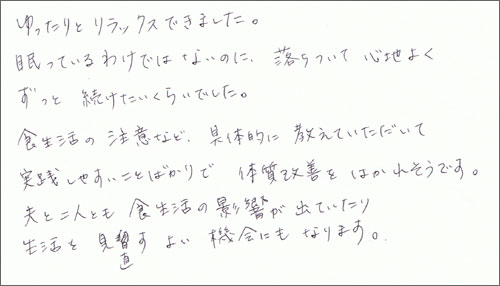 ゆったりと リラックスできました。
眠っているわけではないのに、落ちついて 心地よく
ずっと 続けたいくらいでした。
食生活の 注意など、具体的に 教えていただいて
実践しやすいことばかりで 体質改善を はかれそうです。
夫と二人とも 食生活の影響が 出ていたり
生活を 見直す よい 機会にも なります。